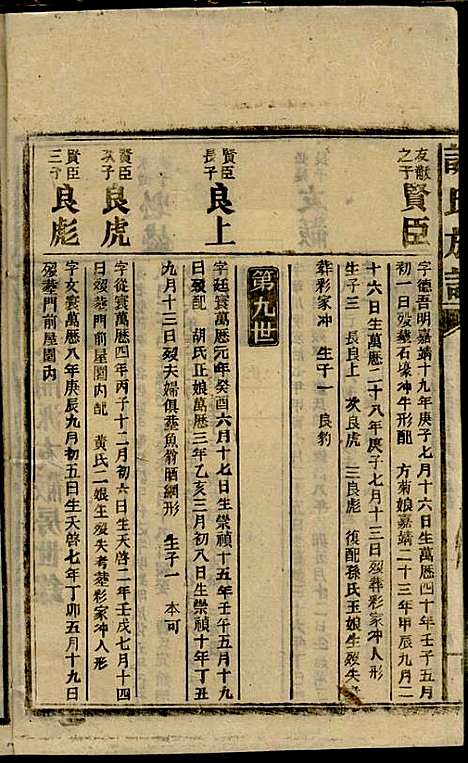 友猷之子賢臣
字德吾明嘉靖十九年庚子七月十六日生萬曆四十年壬子五月
初一日歿塟石壕冲牛形配 方菊娘嘉靖二十三年甲辰九月二
十六日生萬曆二十八年庚子七月十三日歿葬彩家冲人形
生子三 長良上 次良虎 三良彪 復配孫氏玉娘生歿失
葬彩家冲 生子一 良豹
第九世
賢臣長子良上
字廷寰萬曆元年癸酉六月十七日生崇禎十五年壬午五月十九
日歿配 胡氏正娘萬曆三年乙亥三月初八日生崇禎十年丁丑
九月十三日歿夫婦俱塟魚翁晒網形 生子一 本可
賢臣次子良虎
字從寰萬曆四年丙子十二月初六日生天啓二年壬戌七月十四
日歿塟門前屋園內配 黃氏一娘生歿失考塟彩家冲人形
賢臣三子良彪
字文寰萬曆八年庚辰九月初五日生天啓七年丁卯五月十九日
歿塟門前屋園內